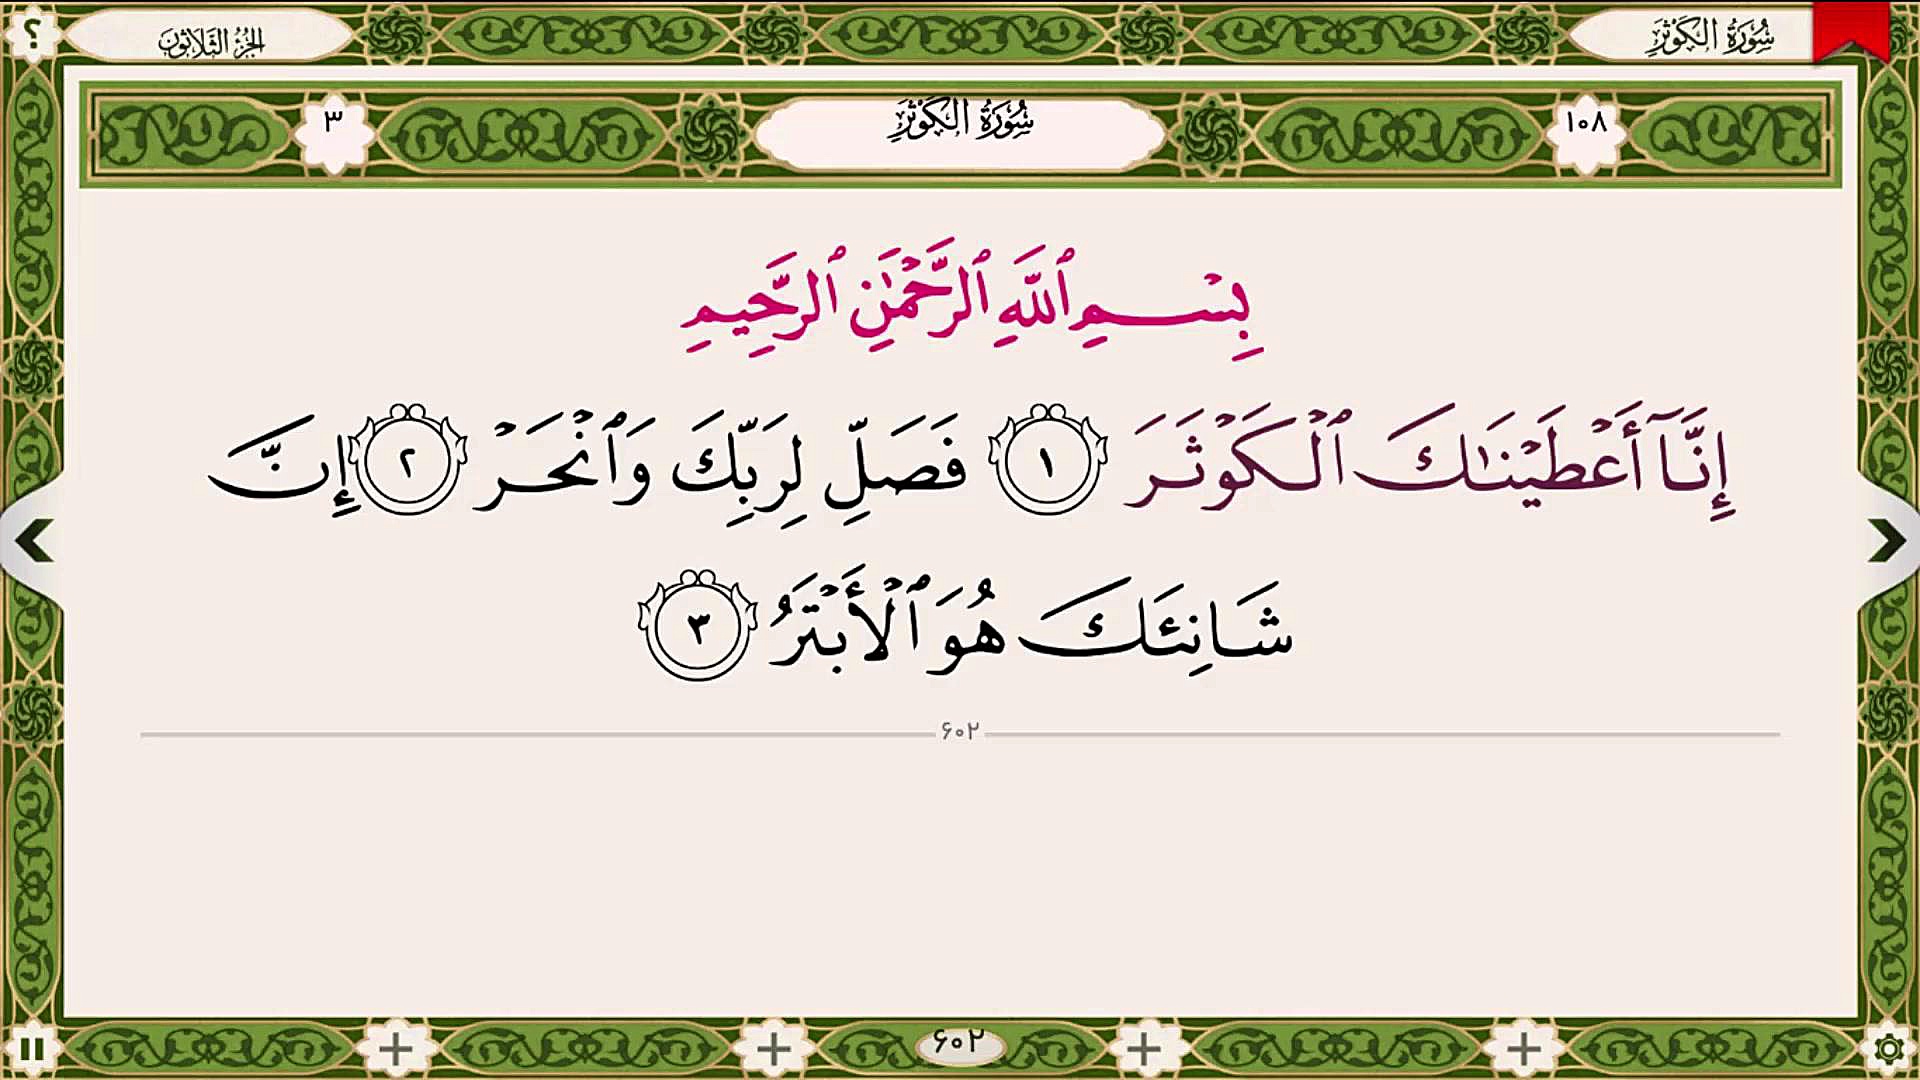 سُورَةُ الكَوْثَرِ
الجُزْءُ الثَّلَاثُونَ
؟
١٠٨
سُورَةُ الكَوْثَرِ
٣
بِسْمِ ٱللَّهِ ٱلرَّحْمَٰنِ ٱلرَّحِيمِ
إِنَّآ أَعْطَيْنَٰكَ ٱلْكَوْثَرَ ١ فَصَلِّ لِرَبِّكَ وَٱنْحَرْ ٢ إِنَّ
شَانِئَكَ هُوَ ٱلْأَبْتَرُ ٣
۶۰۲
۶۰۲